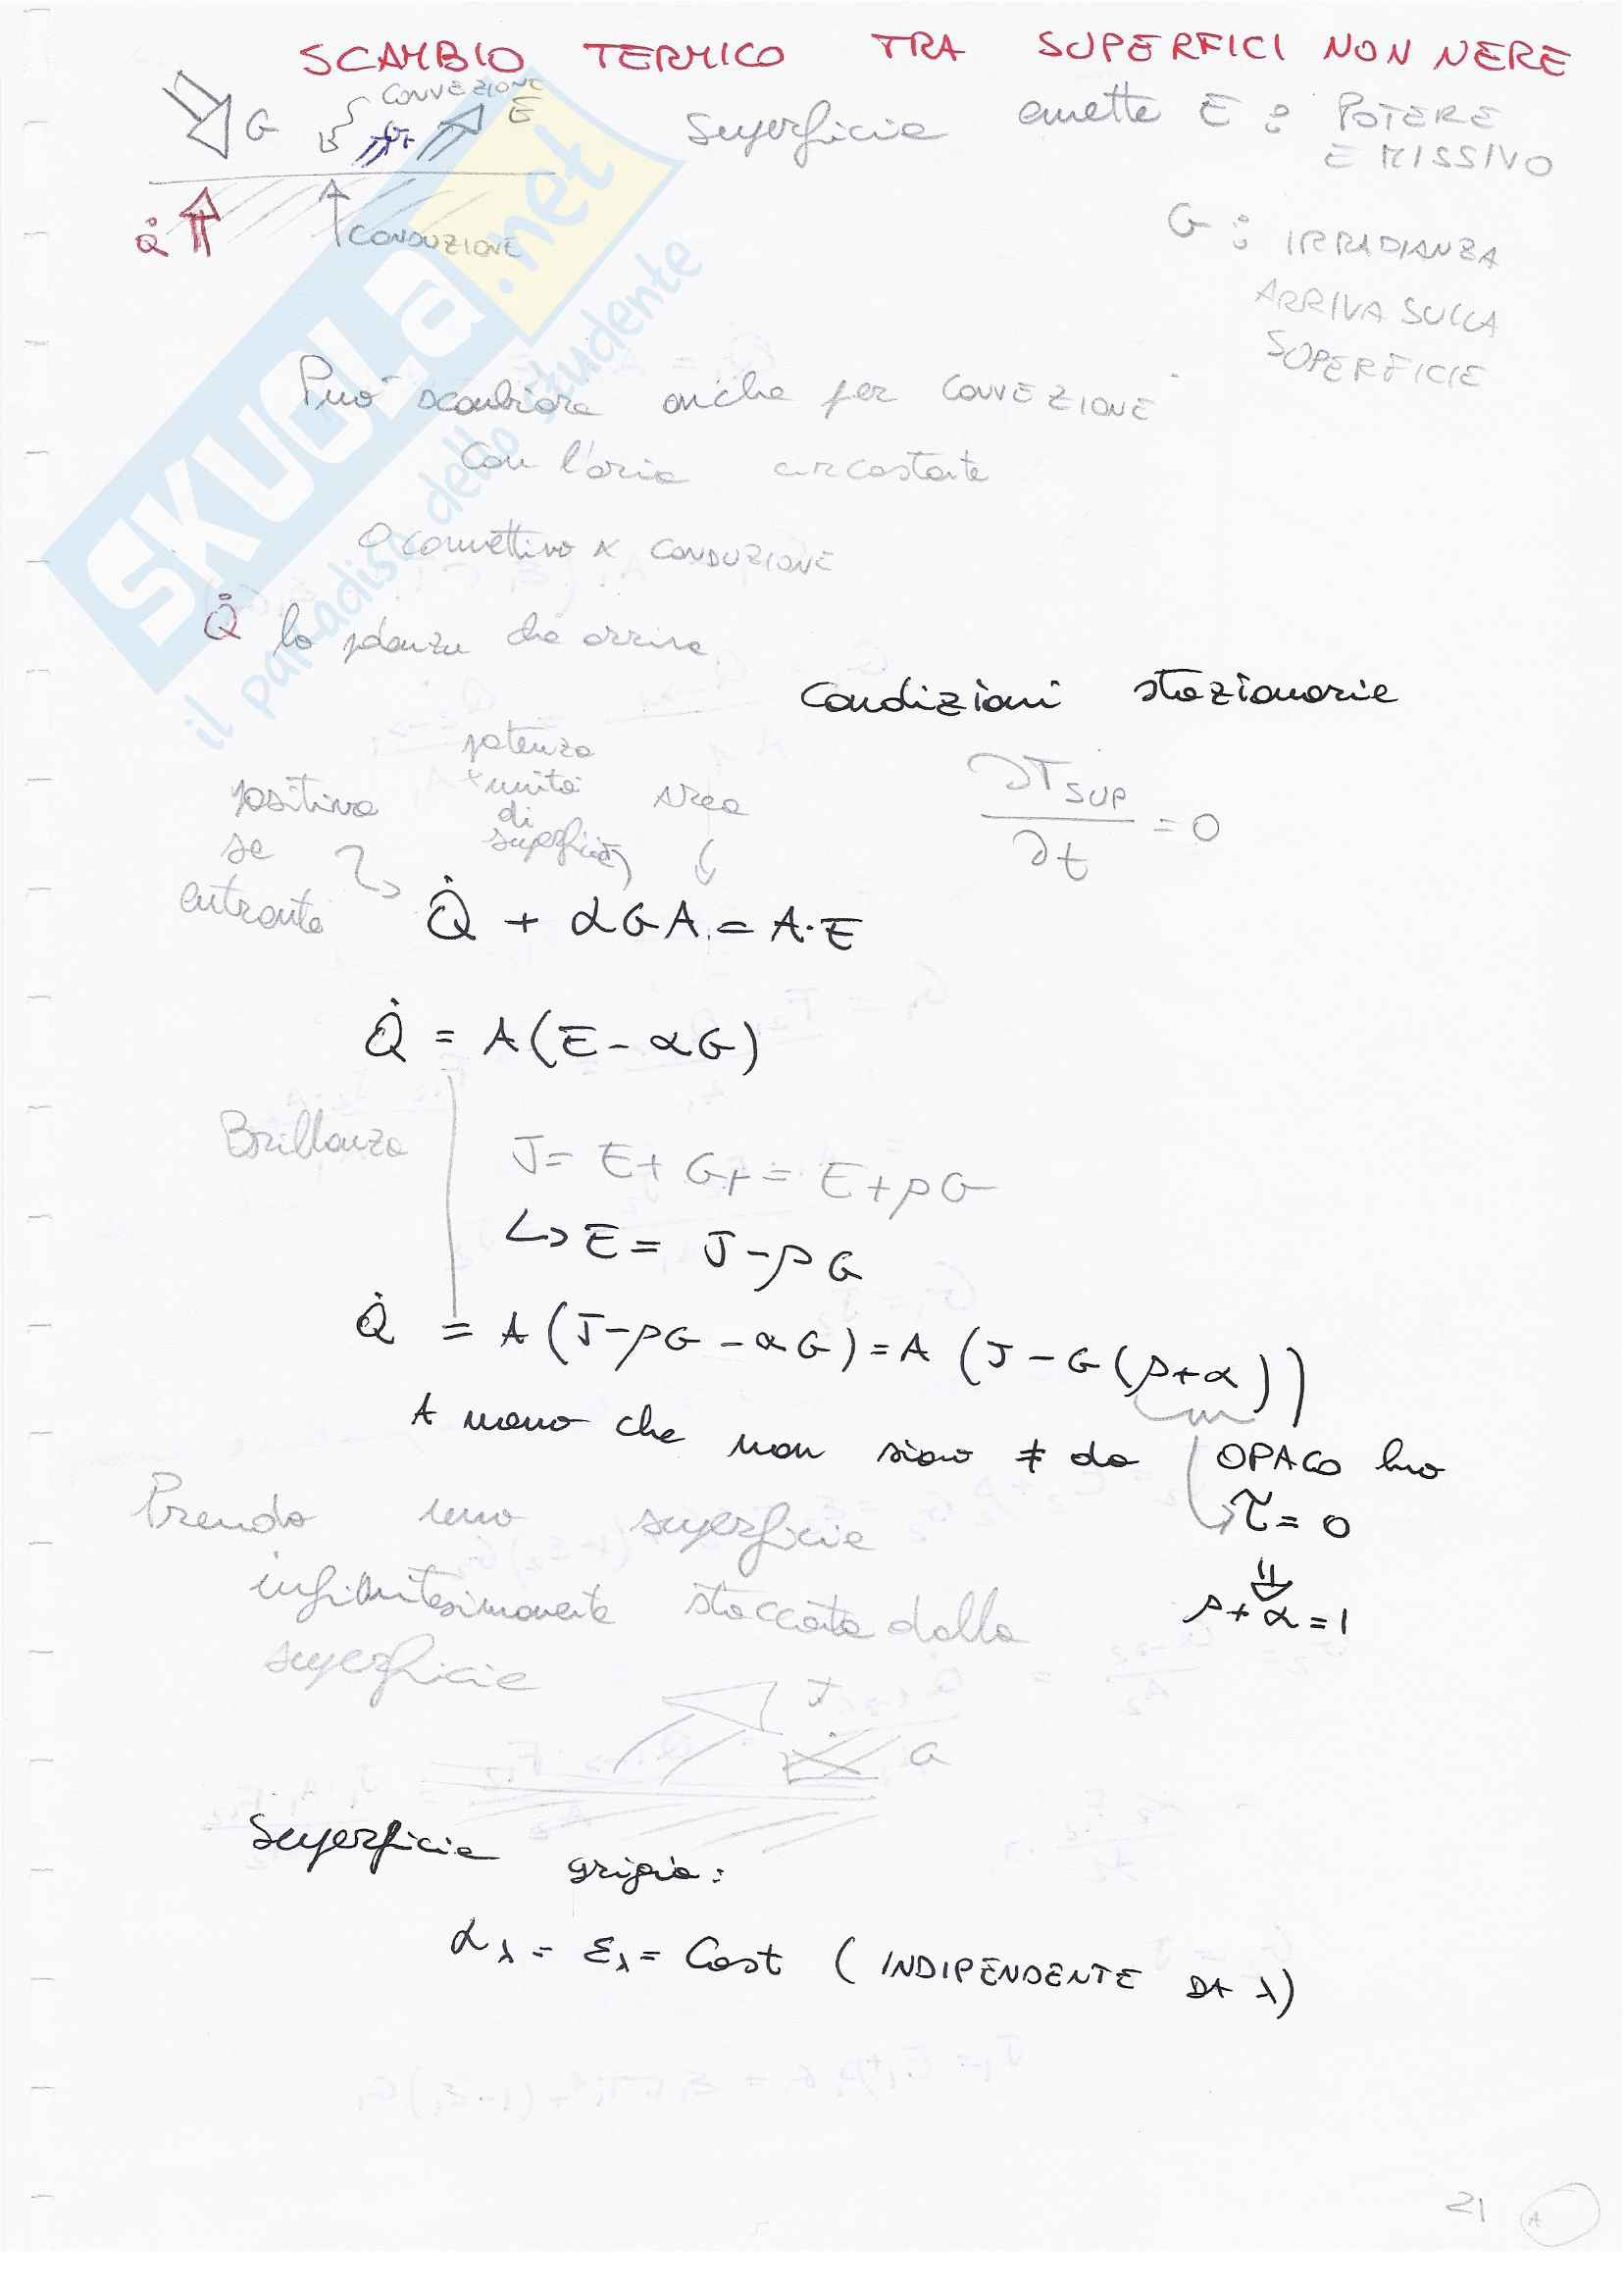 SCAMBIO TERMICO TRA SUPERFICI NON NERE
G
CONVEZIONE
Gr
E
Superficie emette E : POTERE
EMISSIVO
Q̇
CONDUZIONE
G : IRRADIANZA
ARRIVA SULLA
SUPERFICIE
SKUOLA.net
il paradiso dello studente
Può scambiare anche per CONVEZIONE
con l'aria circostante
O convettivo x CONDUZIONE
Q̇ la potenza che arriva
Condizioni stazionarie
∂T_SUP / ∂t = 0
positiva
se
entrante
potenza
x unità
di
superficie
area
Q̇ + αGA = A·E
Q̇ = A(E - αG)
Brillanza
J = E + Gr = E + ρG
↳ E = J - ρG
Q̇ = A(J - ρG - αG) = A(J - G(ρ+α))
A meno che non siano ≠ da
OPACO ho
τ = 0
⇓
ρ + α = 1
Prendo una superficie
infinitesimamente staccata dalla
superficie
J
G
Superficie grigia:
αλ = ελ = Cost (INDIPENDENTE DA λ)
21
A